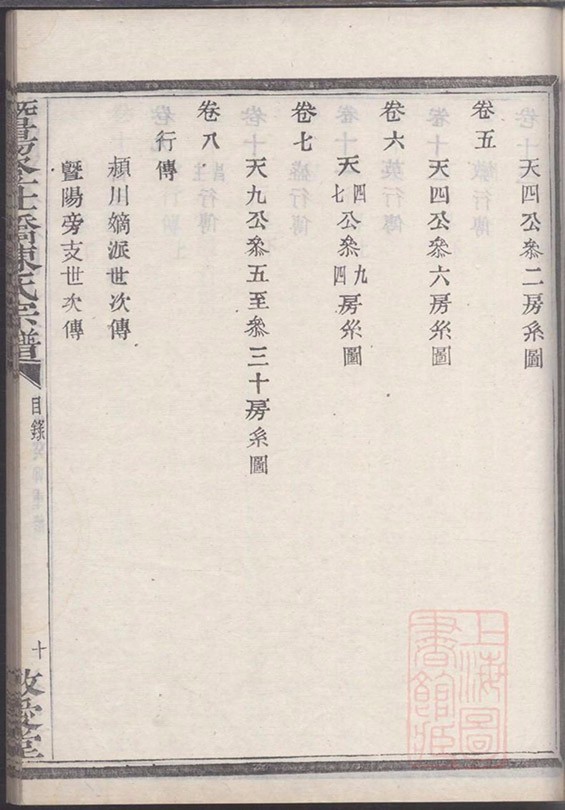 天四公叅二房系圖
卷五
天四公叅六房系圖
卷六
天四七公叅九四房系圖
卷七
天九公叅五至叅三十房系圖
卷八
行傳
潁川嫡派世次傳
暨陽旁支世次傳
陳氏宗譜
目錄
十
敬愛堂
上海圖書館藏